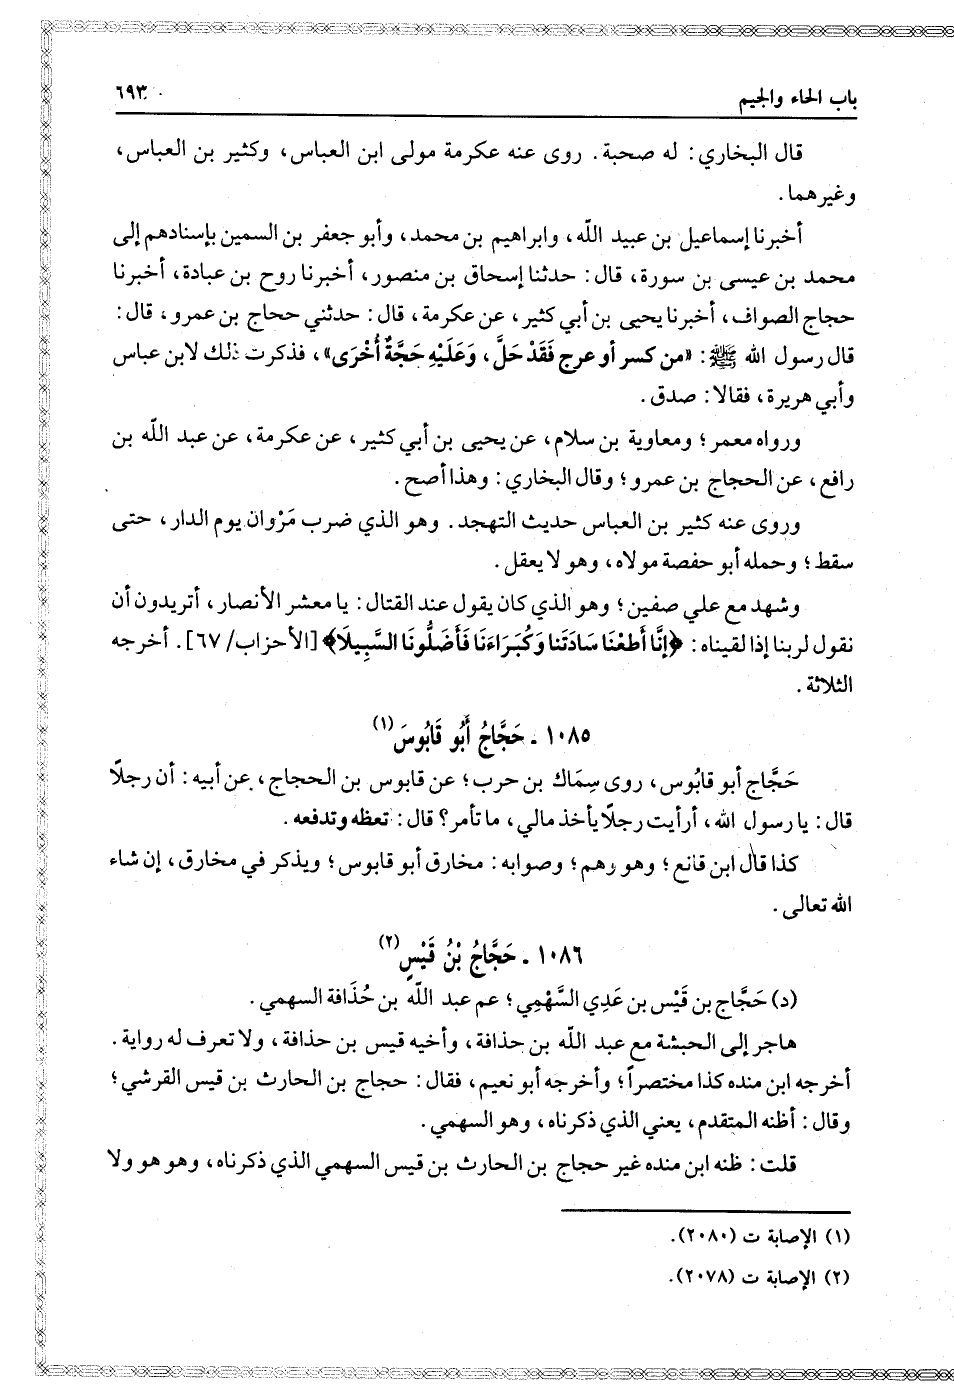 باب الحاء والجيم ٦٩٣
قال البخاري: له صحبة. روى عنه عكرمة مولى ابن العباس، وكثير بن العباس،
وغيرهما.
أخبرنا إسماعيل بن عبيد الله، وابراهيم بن محمد، وأبو جعفر بن السمين بإسنادهم إلى
محمد بن عيسى بن سورة، قال: حدثنا إسحاق بن منصور، أخبرنا روح بن عبادة، أخبرنا
حجاج الصواف، أخبرنا يحيى بن أبي كثير، عن عكرمة، قال: حدثني حجاج بن عمرو، قال:
قال رسول الله ﷺ: «من كسر أو عرج فَقَدْ حَلَّ، وَعَلَيْهِ حَجَّةٌ أُخْرَى»، فذكرت ذلك لابن عباس
وأبي هريرة، فقالا: صدق.
ورواه معمر؛ ومعاوية بن سلام، عن يحيى بن أبي كثير، عن عكرمة، عن عبد الله بن
رافع، عن الحجاج بن عمرو؛ وقال البخاري: وهذا أصح.
وروى عنه كثير بن العباس حديث التهجد. وهو الذي ضرب مَرْوان يوم الدار، حتى
سقط؛ وحمله أبو حفصة مولاه، وهو لا يعقل.
وشهد مع علي صفين؛ وهو الذي كان يقول عند القتال: يا معشر الأنصار، أتريدون أن
نقول لربنا إذا لقيناه: ﴿إِنَّا أَطَعْنَا سَادَتَنا وَكُبَرَاءَنَا فَأَضَلُّونَا السَّبِيلَا﴾ [الأحزاب/ ٦٧]. أخرجه
الثلاثة.
١٠٨٥ ـ حَجَّاجُ أَبُو قَابُوسَ(١)
حَجَّاج أبو قابُوس، روى سِمَاك بن حرب؛ عن قابوس بن الحجاج، عن أبيه: أن رجلًا
قال: يا رسول الله، أرأيت رجلًا يأخذ مالي، ما تأمر؟ قال: تعظه وتدفعه.
كذا قال ابن قانع؛ وهو وهم؛ وصوابه: مخارق أبو قابوس؛ ويذكر في مخارق، إن شاء
الله تعالى.
١٠٨٦ ـ حَجَّاجُ بْنُ قَيْسٍ(٢)
(د) حَجَّاج بن قَيْس بن عَدِي السَّهْمِي؛ عم عبد الله بن حُذَافة السهمي.
هاجر إلى الحبشة مع عبد الله بن حذافة، وأخيه قيس بن حذافة، ولا تعرف له رواية.
أخرجه ابن منده كذا مختصراً؛ وأخرجه أبو نعيم، فقال: حجاج بن الحارث بن قيس القرشي؛
وقال: أظنه المتقدم، يعني الذي ذكرناه، وهو السهمي.
قلت: ظنه ابن منده غير حجاج بن الحارث بن قيس السهمي الذي ذكرناه، وهو هو ولا
(١) الإصابة ت (٢٠٨٠).
(٢) الإصابة ت (٢٠٧٨).